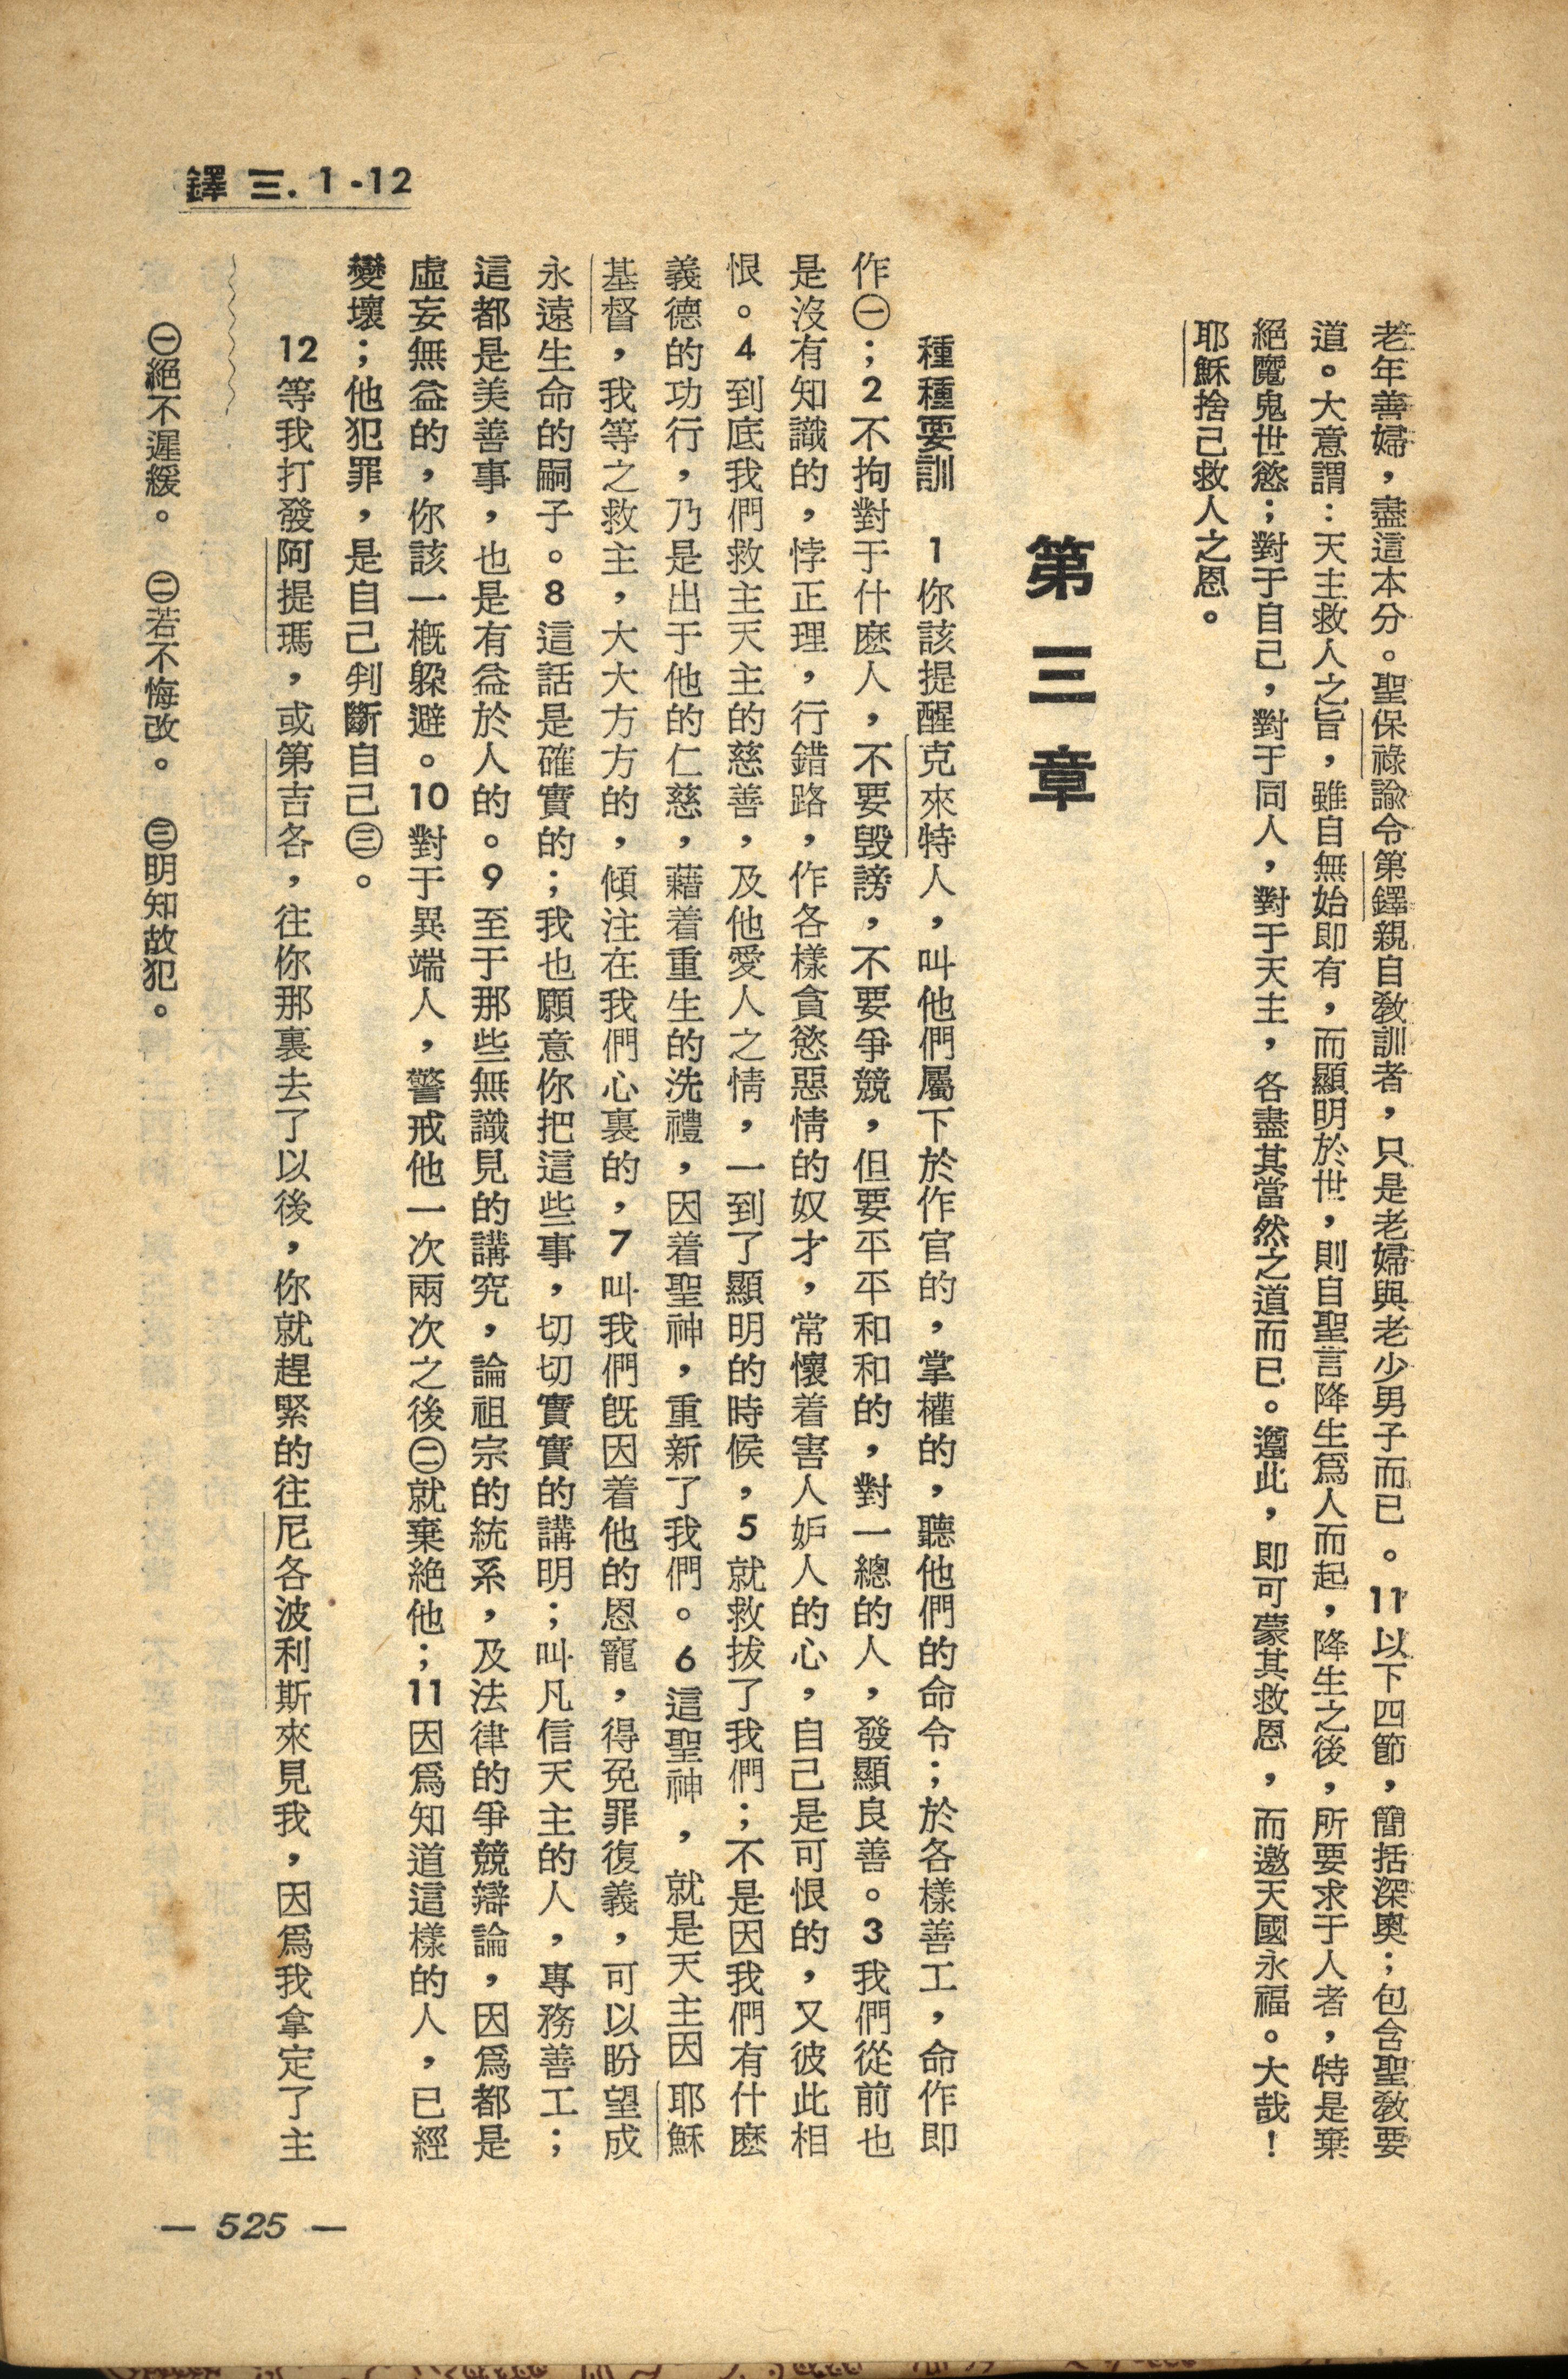 鐸 三. 1 - 12
老年善婦，盡這本分。聖保祿諭令第鐸親自敎訓者，只是老婦與老少男子而已。11以下四節，簡括深奧；包含聖敎要
道。大意謂：天主救人之旨，雖自無始即有，而顯明於世，則自聖言降生爲人而起，降生之後，所要求于人者，特是棄
絕魔鬼世慾；對于自己，對于同人，對于天主，各盡其當然之道而已。遵此，即可蒙其救恩，而邀天國永福。大哉！
耶穌捨己救人之恩。
第三章
種種要訓　1你該提醒克來特人，叫他們屬下於作官的，掌權的，聽他們的命令；於各樣善工，命作即
作㊀；2不拘對于什麽人，不要毀謗，不要爭競，但要平平和和的，對一總的人，發顯良善。3我們從前也
是沒有知識的，悖正理，行錯路，作各樣貪慾惡情的奴才，常懷着害人妒人的心，自己是可恨的，又彼此相
恨。4到底我們救主天主的慈善，及他愛人之情，一到了顯明的時候，5就救拔了我們；不是因我們有什麽
義德的功行，乃是出于他的仁慈，藉着重生的洗禮，因着聖神，重新了我們。6這聖神，就是天主因耶穌
基督，我等之救主，大大方方的，傾注在我們心裏的，7叫我們旣因着他的恩寵，得免罪復義，可以盼望成
永遠生命的嗣子。8這話是確實的；我也願意你把這些事，切切實實的講明；叫凡信天主的人，專務善工；
這都是美善事，也是有益於人的。9至于那些無識見的講究，論祖宗的統系，及法律的爭競辯論，因爲都是
虛妄無益的，你該一槪躲避。10對于異端人，警戒他一次兩次之後㊁就棄絕他；11因爲知道這樣的人，已經
變壞；他犯罪，是自己判斷自己㊂。
12等我打發阿提瑪，或第吉各，往你那裏去了以後，你就趕緊的往尼各波利斯來見我，因爲我拿定了主
㊀絕不遲緩。　㊁若不悔改。　㊂明知故犯。
— 525 —